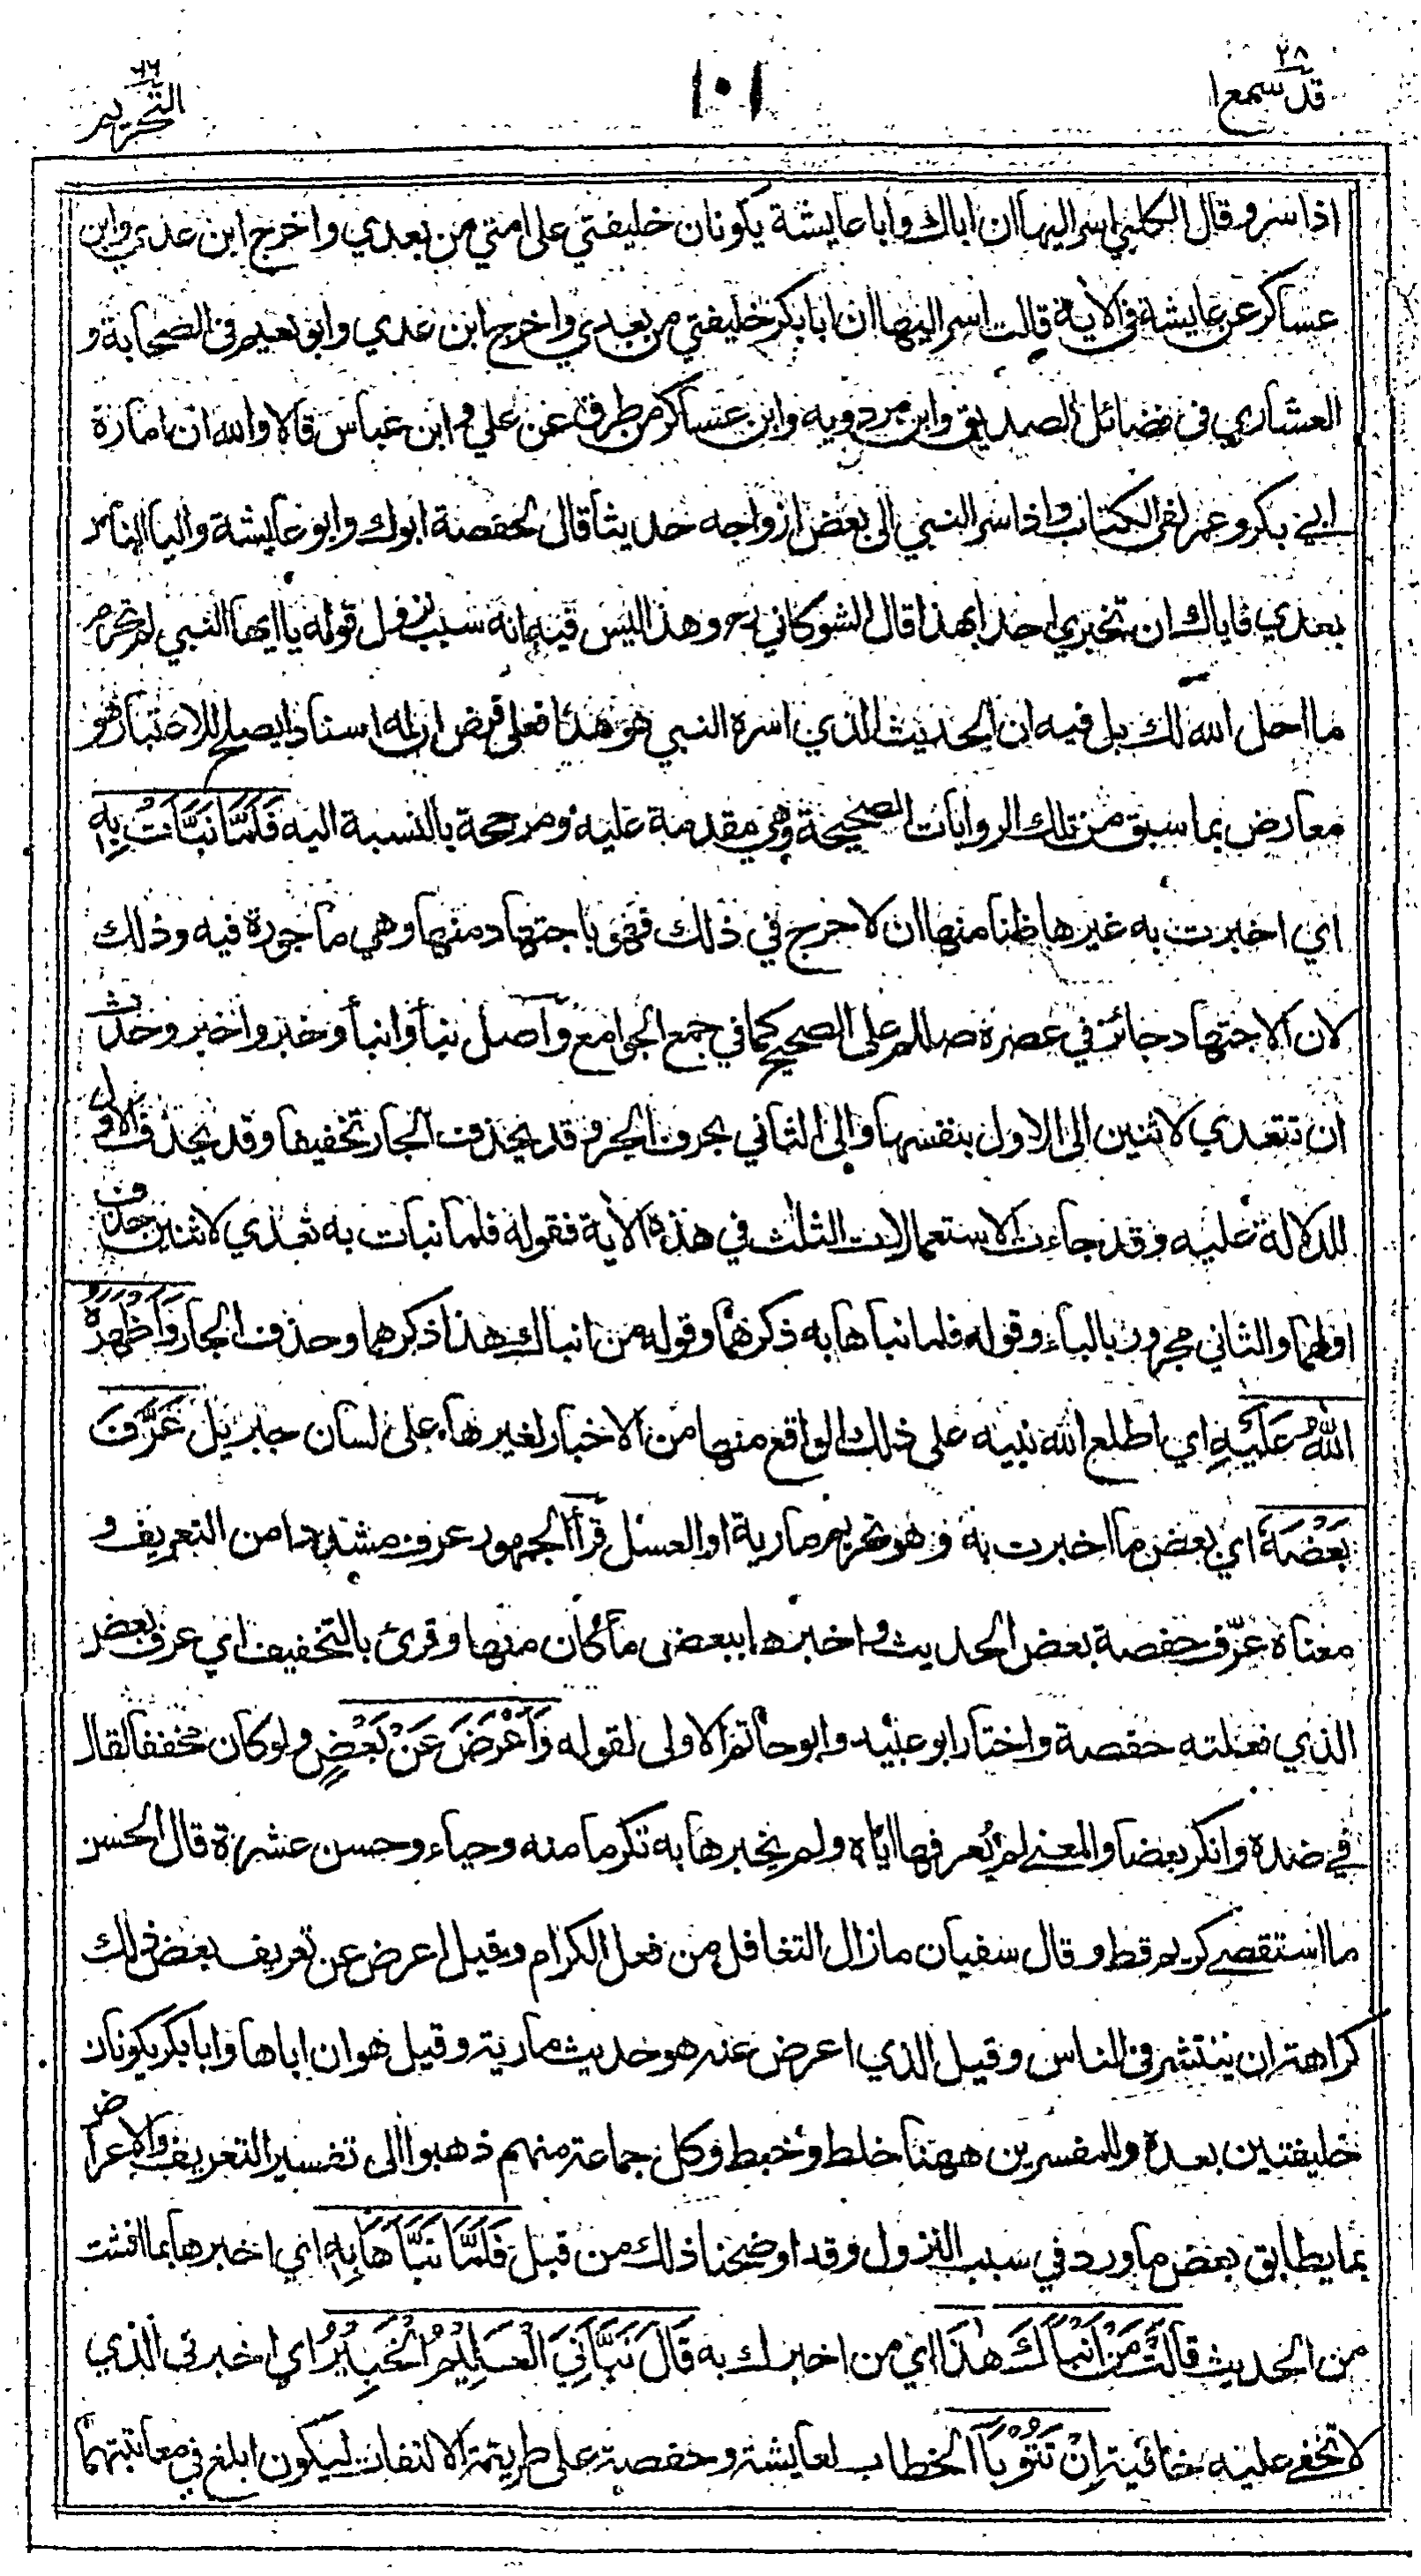 ٢٨
قد سمع ا
١٠١
٦٦
التحريم
اذا سر و قال الكلبي اسر اليها ان اباك وابا عايشة يكونان خليفتي على امتي من بعدي واخرج ابن عدي وابن
عساكر عن عايشة في الآية قالت اسر اليها ان ابا بكر خليفتي من بعدي واخرج ابن عدي وابو نعيم في الصحابة و
العشاري في فضائل الصديق وابن مردويه وابن عساكر من طرق عن علي و ابن عباس قالا والله ان امارة
ابي بكر وعمر لفي الكتاب واذا سر النبي الى بعض ازواجه حديثا قال لحفصة ابوك وابو عايشة واليا الناس
بعدي فاياك ان تخبري احدا بهذا قال الشوكاني رح وهذا ليس فيه انه سبب نزول قوله يا ايها النبي لم تحرم
ما احل الله لك بل فيه ان الحديث الذي اسره النبي هو هذا فعلى فرض ان له اسنادا يصلح للاعتبار هو
معارض بما سبق من تلك الروايات الصحيحة وهي مقدمة عليه ومرجحة بالنسبة اليه فَلَمَّا نَبَّأَتْ بِهِ
اي اخبرت به غيرها ظنا منها ان لا حرج في ذلك فهو باجتهاد منها وهي ماجورة فيه وذلك
لان الاجتهاد جائز في عصره صللم على الصحيح كما في جمع الجوامع واصل نبأ وانبأ وخبر واخبر وحدث
ان تتعدي لاثنين الى الاول بنفسها والى الثاني بحرف الجر وقد يحذف الجار تخفيفا وقد يحذف الاول
للدلالة عليه وقد جاءت الاستعمالات الثلث في هذه الآية فقوله فلما نبات به تعدي لاثنين حذف
اولهما والثاني مجرور بالباء وقوله فلما نباها به ذكرهما وقوله من انباك هذا ذكرهما وحذف الجار وَأَظْهَرَهُ
اللّٰهُ عَلَيْهِ اي اطلع الله نبيه على ذلك الواقع منها من الاخبار لغيرها على لسان جبريل عَرَّفَ
بَعْضَهُ اي بعض ما اخبرت به وهو تحريم مارية او العسل قرأ الجمهور عرف مشددا من التعريف و
معناه عرّف حفصة بعض الحديث واخبرها ببعض ما كان منها وقرئ بالتخفيف اي عرف بعض
الذي فعلته حفصة واختار ابو عبيد وابو حاتم الاولى لقوله وَأَعْرَضَ عَنْ بَعْضٍ ولو كان مخففا لقال
في ضده وانكر بعضا والمعنى لم يُعرفها اياه ولم يخبرها به تكرما منه وحياء وحسن عشرة قال الحسن
ما استقصى كريم قط وقال سفيان ما زال التغافل من فعل الكرام وقيل اعرض عن تعريف بعض ذلك
كراهة ان ينتشر في الناس وقيل الذي اعرض عنه هو حديث مارية وقيل هو ان اباها وابا بكر يكونان
خليفتين بعده وللمفسرين ههنا خلط وخبط وكل جماعة منهم ذهبوا الى تفسير التعريف والاعراض
بما يطابق بعض ما ورد في سبب النزول وقد اوضحنا ذلك من قبل فَلَمَّا نَبَّأَهَا بِهِ اي اخبرها بما افشت
من الحديث قَالَتْ مَنْ أَنْبَأَكَ هٰذَا اي من اخبرك به قَالَ نَبَّأَنِيَ الْعَلِيْمُ الْخَبِيْرُ اي اخبرني الذي
لا تخفى عليه خافية اِنْ تَتُوْبَا الخطاب لعايشة وحفصة على طريقة الالتفات ليكون ابلغ في معاتبتهما